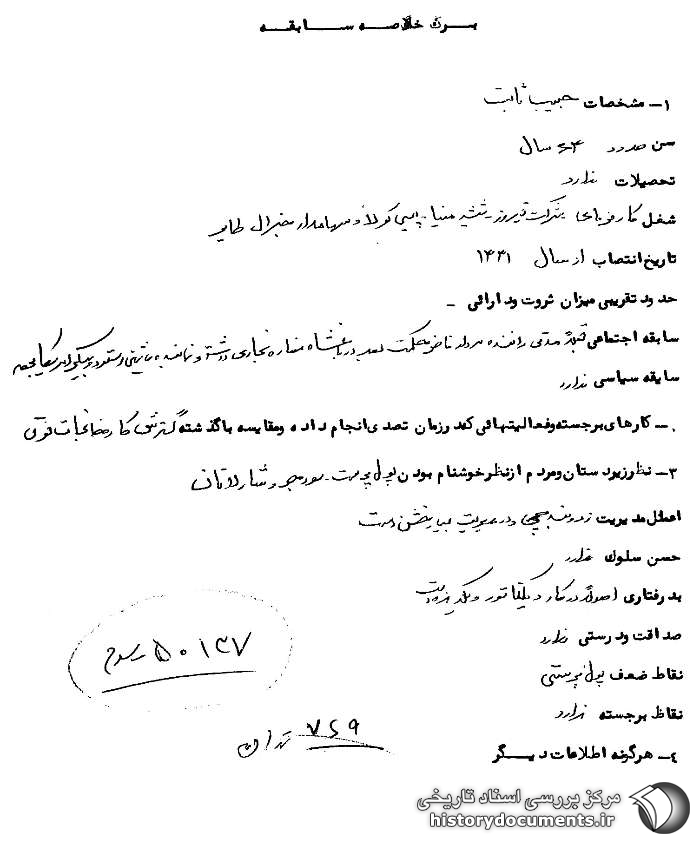 بـرگ خلاصـه ســابقـه
۱ـ مشخصات حبیب ثابت
سن حدود ۶۴ سال
تحصیلات ندارد
شغل کارفرمای شرکت فیروز ـ شیشه مینا ـ پپسی کولا و سهامدار جنرال تایر
تاریخ انتصاب از سال ۱۳۳۱
حدود تقریبی میزان ثروت و دارائی ـ
سابقه اجتماعی قبلاً مدتی راننده بعد در مغازه نجاری داشته و نماینده
سابقه سیاسی ندارد
۲ـ کارهای برجسته و فعالیتهائی که در زمان تصدی انجام داده و مقایسه با گذشته گسترش کارخانجات فوق
۳ـ نظر زیردستان و مردم از نظر خوشنام بودن پول پرست ـ سودجو و شارلاتان
اعمال مدیریت در مدیریت است
حسن سلوک ندارد
بدرفتاری اصولاً در کار دیکتاتور و است
صداقت و درستی ندارد
نقاط ضعف پول پرستی
نقاط برجسته ندارد
۵۰۱۳۷
۷۶۹
۴ـ هرگونه اطلاعات دیـگر
مرکز بررسی اسناد تاریخی
historydocuments.ir